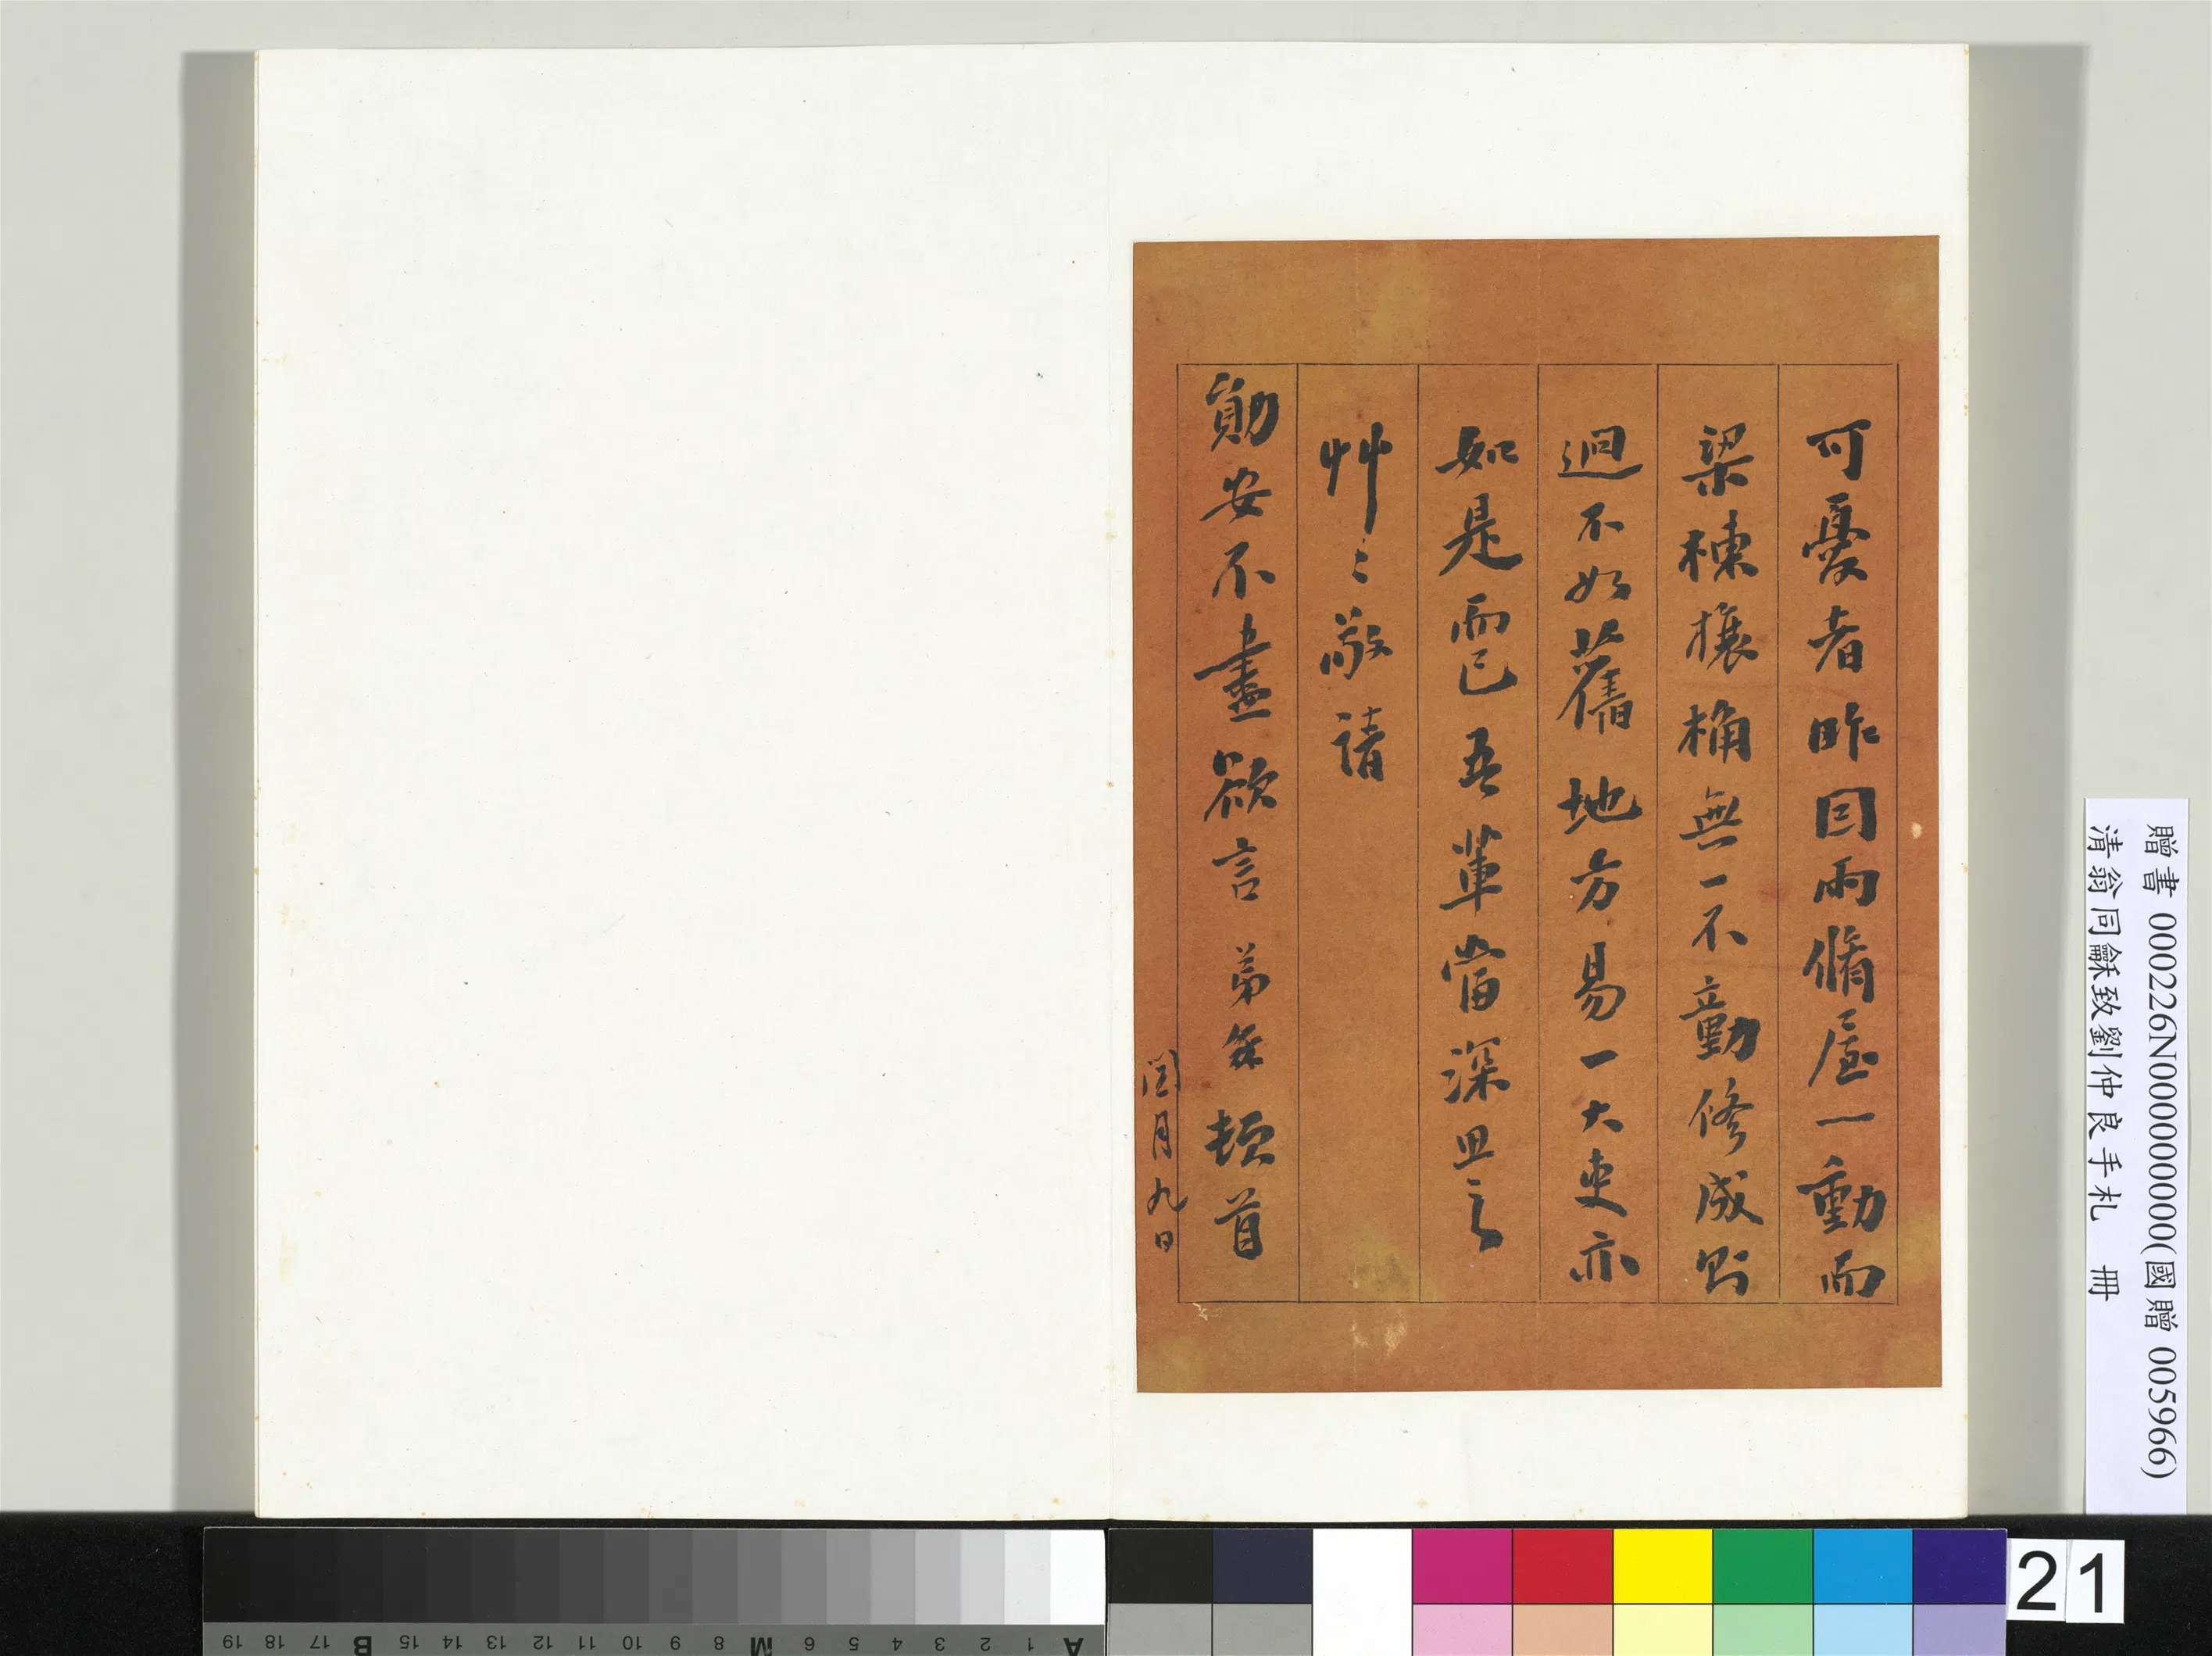 可憂者昨因雨脩屋一動而
梁棟欀桷無一不動修成則
迥不如舊地方易一大吏亦
如是而已吾輩當深思之
艸〻敬請
勛安不盡欲言 弟 頓首
閏月九日
贈書 000226N000000000(國贈 005966)
清翁同龢致劉仲良手札 冊
21
A 1 2 3 4 5 6 M 8 9 10 11 12 13 14 15 B 17 18 19